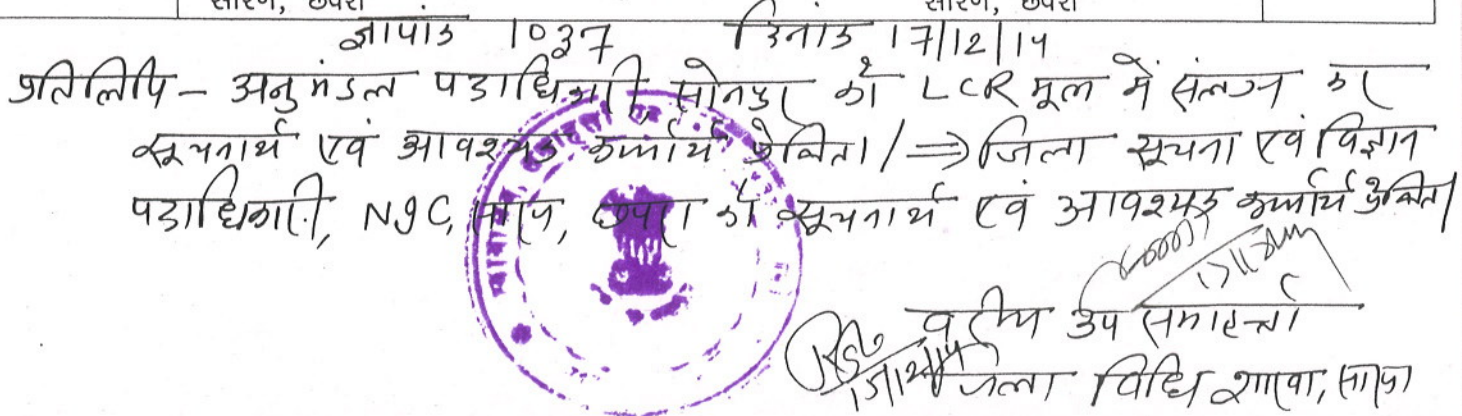 सारण, छपरा सारण, छपरा
ज्ञापांक 1037 दिनांक 17/12/14
प्रतिलिपि - अनुमंडल पदाधिकारी, सोनपुर को LCR मूल में संलग्न कर
सूचनार्थ एवं आवश्यक कार्यार्थ प्रेषित। / ⇒ जिला सूचना एवं विज्ञान
पदाधिकारी, NIC, सारण, छपरा को सूचनार्थ एवं आवश्यक कार्यार्थ प्रेषित।
वरीय उप समाहर्त्ता
जिला विधि शाखा, सारण